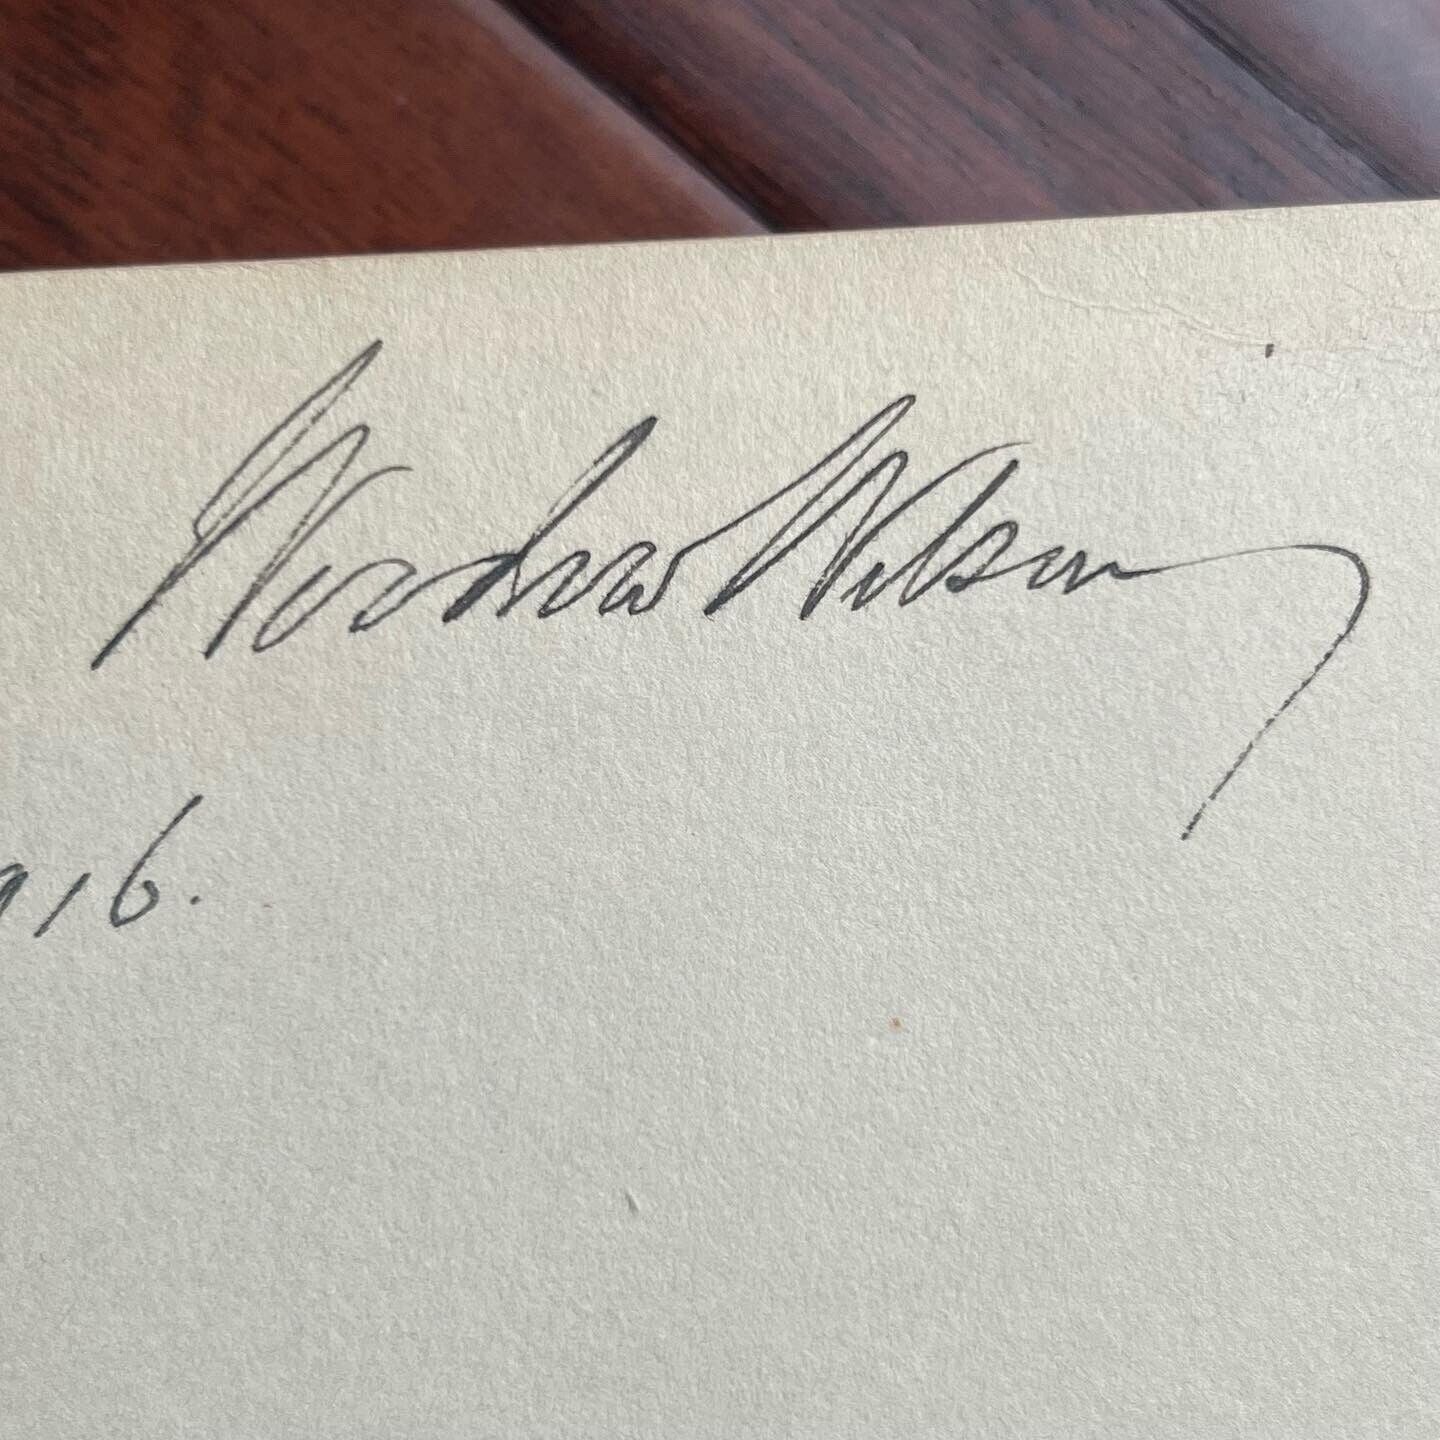 Woodrow Wilson
916.